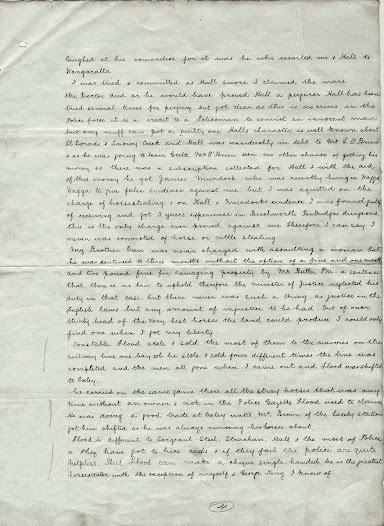 laughed at his cowardice for it was he who escorted me & Hall to
Wangaratta
I was tried & committed as Hall swore I claimed the mare
the Doctor died or he would have proved Hall a perjurer Hall has been
tried several times for perjury but got clear as this is no crime in the
Police force it is a credit to a Policeman to convict an innocent man
but any muff can pot a guilty one Halls character is well known about
El Dorado & Snowy Creek and Hall was considerably in debt to Mr L. O. Brien
& as he was going to leave Greta Mr O Brien seen no other chance of getting his
money so there was a subscription collected for Hall & with the aid
of this money he got James Murdock who was recently hung in Wagga
Wagga to give false evidence against me but I was aquitted on the
charge of horsestealing & on Hall & Murdocks evidence I was found guilty
of receiving and got 3 years experience in Beechworth Pentridges dungeons
this is the only charge ever proved against me therefore I can say I
never was convicted of horse or cattle stealing
My Brother Dan was never charged with assaulting a woman but
he was sentenced to three months without the option of a fine and one month
and two pound fine for damaging property by Mr Butler P.M. a sentence
that there is no law to uphold therefore the minister of Justice neglected his
duty in that case but there never was such a thing as justice in the
English laws but any amount of injustice to be had but of over
thirty head of the very best horses the land could produce I could only
find one when I got my liberty
Constable Flood stole & sold the most of them to the navvies on the
railway line one bay cob he stole & sold four different times the line was
completed and the men all gone when I came out and Flood was shifted
to Oxley
he carried on the same game there all the stray horses that was any
time without an owner & not in the Police Gazette Flood used to claim
He was doing a good trade at Oxley until Mr Brown of the Laceby Station
got him shifted as he was always running his horses about
Flood is different to Sergeant Steel, Strachan, Hall & the most of Police
as they have got to hire cads & if they fail the police are quite
helpless. But Flood can make a cheque single-handed he is the greatest
horsestealer with the exception of myself & George King I know of
4